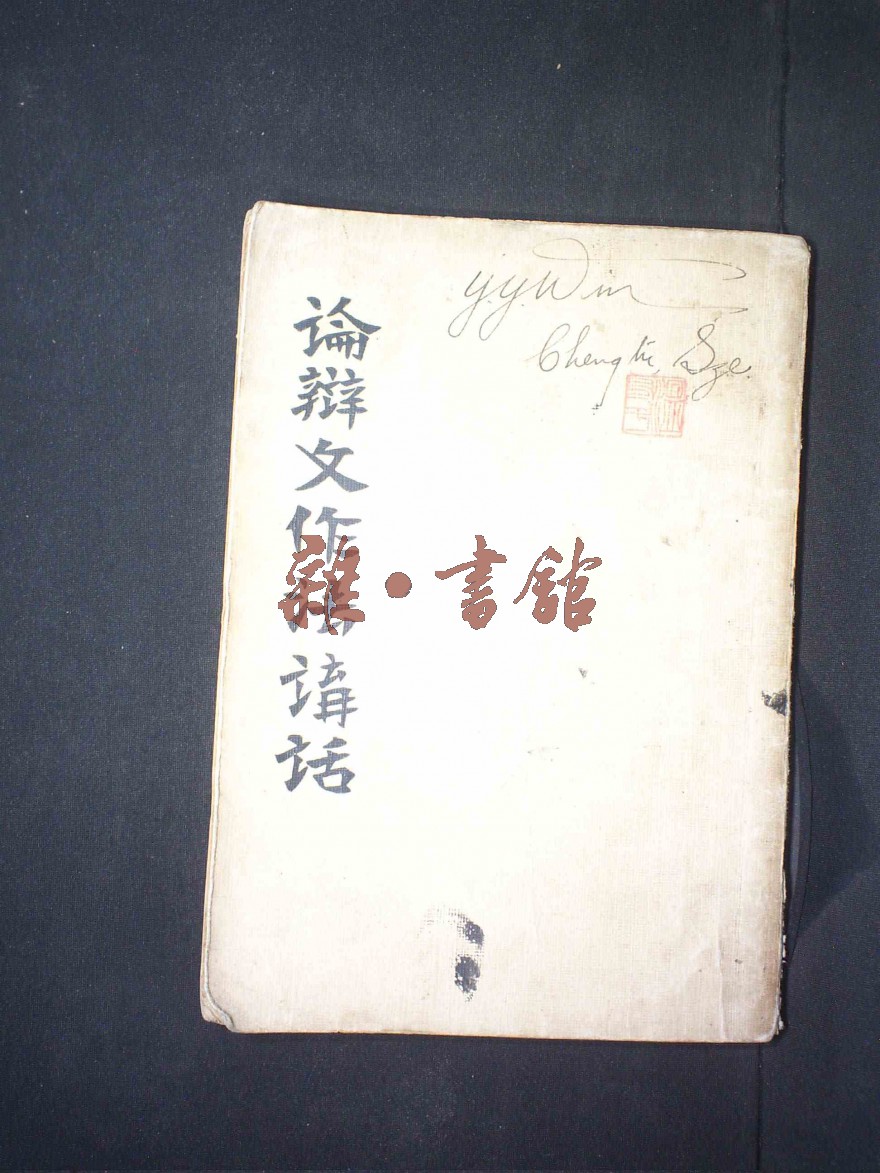 論辯文作法講話
y.y. Win
Chengtu, Sze.
雜・書館